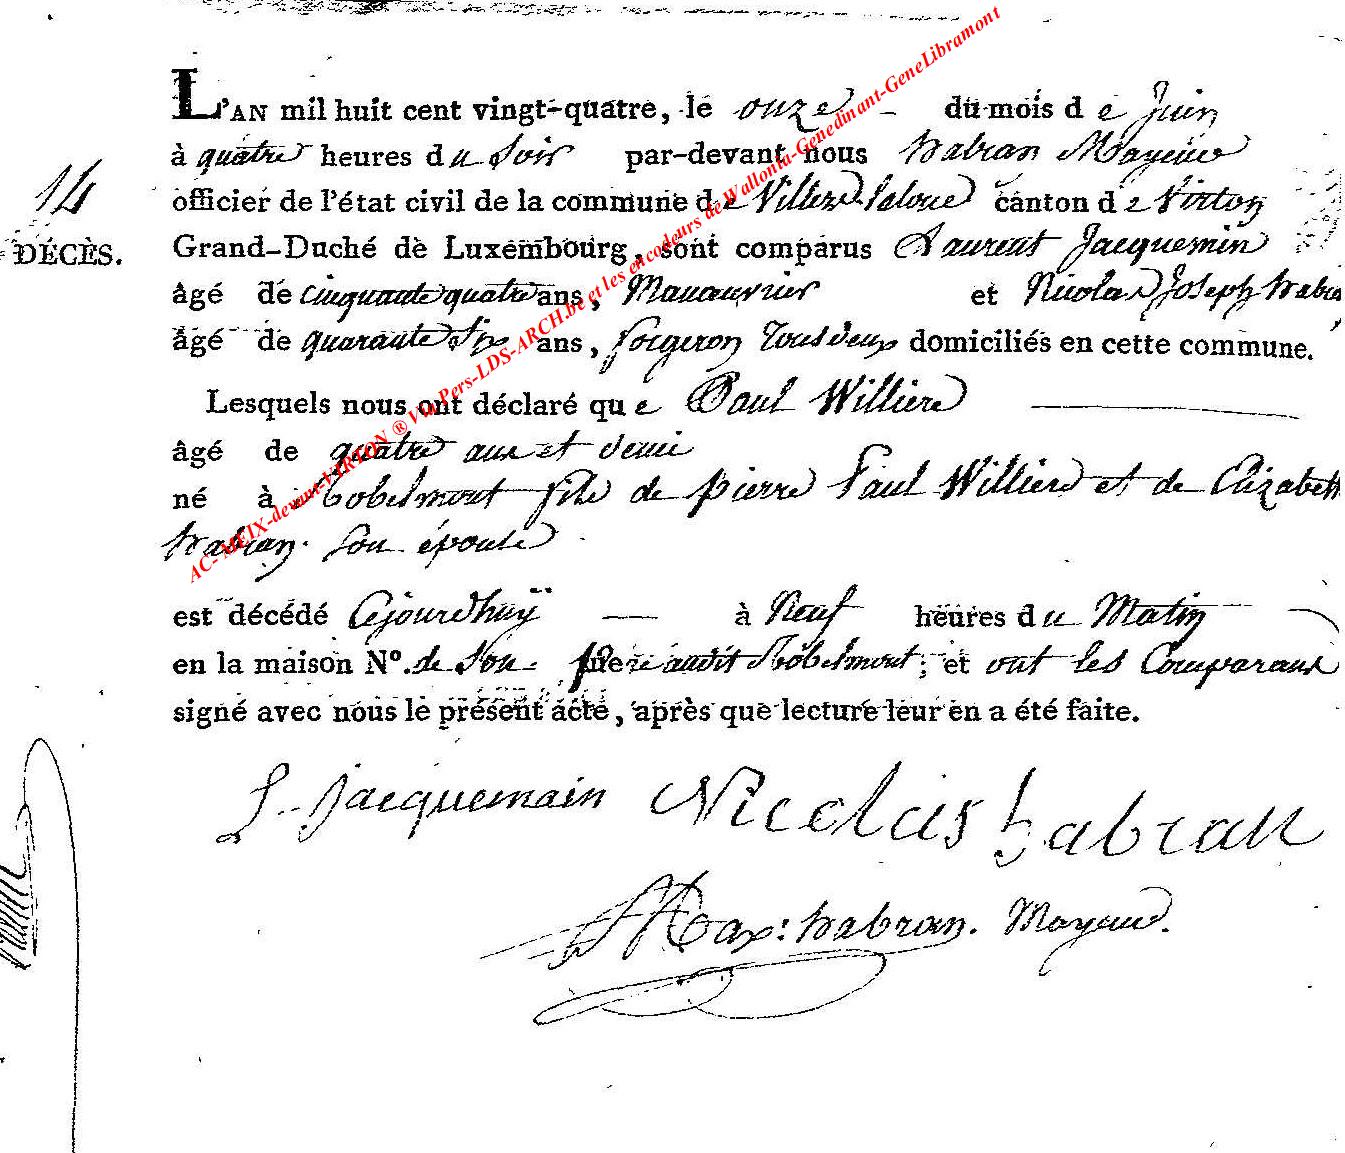 L'AN mil huit cent vingt-quatre, le onze du mois de Juin
à quatre heures du Soir par-devant nous habran Mayeur
14
officier de l'état civil de la commune de Villers-laloue canton de Virton
DÉCÈS.
Grand-Duché de Luxembourg, sont comparus Laurent Jacquemin
âgé de cinquante quatre ans, Manauvrier et Nicolas Joseph habran
âgé de quarante six ans, forgeron Tous deux domiciliés en cette commune.
Lesquels nous ont déclaré que Paul Willière
âgé de quatre ans et demi
né à Robelmont fils de pierre Paul Willière et de Elizabeth
habran son épouse
est décédé Cejourdhuÿ à Neuf heures du Matin
en la maison Nº. de son père audit Robelmont; et ont les Comparans
signé avec nous le présent acte, après que lecture leur en a été faite.
L. Jacquemain Nicolas habran
Max: habran. Mayeur.
AC-MEIX-devant-VIRTON ® Via Pers-LDS-ARCH.be et les encodeurs de Wallonia-Genedinant-GeneLibramont